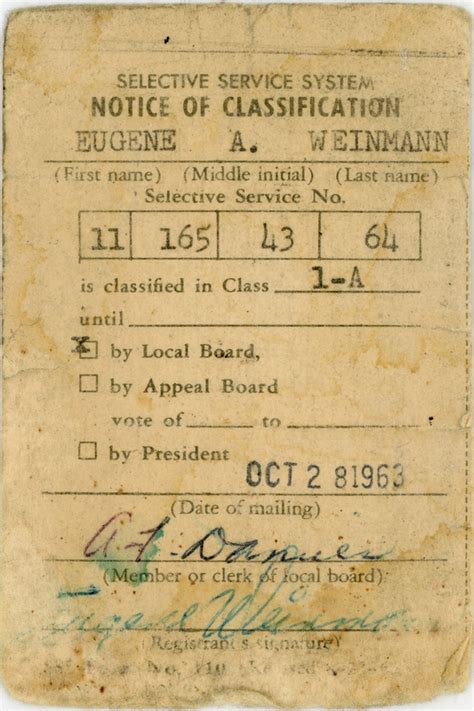 SELECTIVE SERVICE SYSTEM
NOTICE OF CLASSIFICATION
EUGENE A. WEINMANN
(First name) (Middle initial) (Last name)
Selective Service No.
11 165 43 64
is classified in Class 1-A
until
X by Local Board,
by Appeal Board
vote of to
by President
OCT 28 1963
(Date of mailing)
(Member or clerk of local board)
Eugene Weinmann
(Registrant's signature)
No. 110